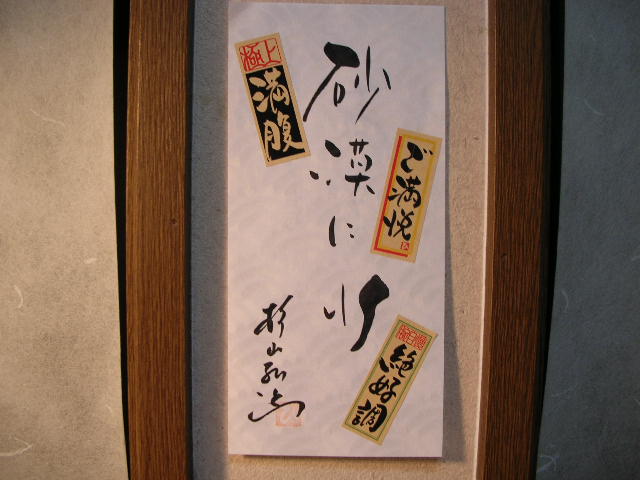 砂漠に水
極上
満腹
ご満悦
絶好調
杉山